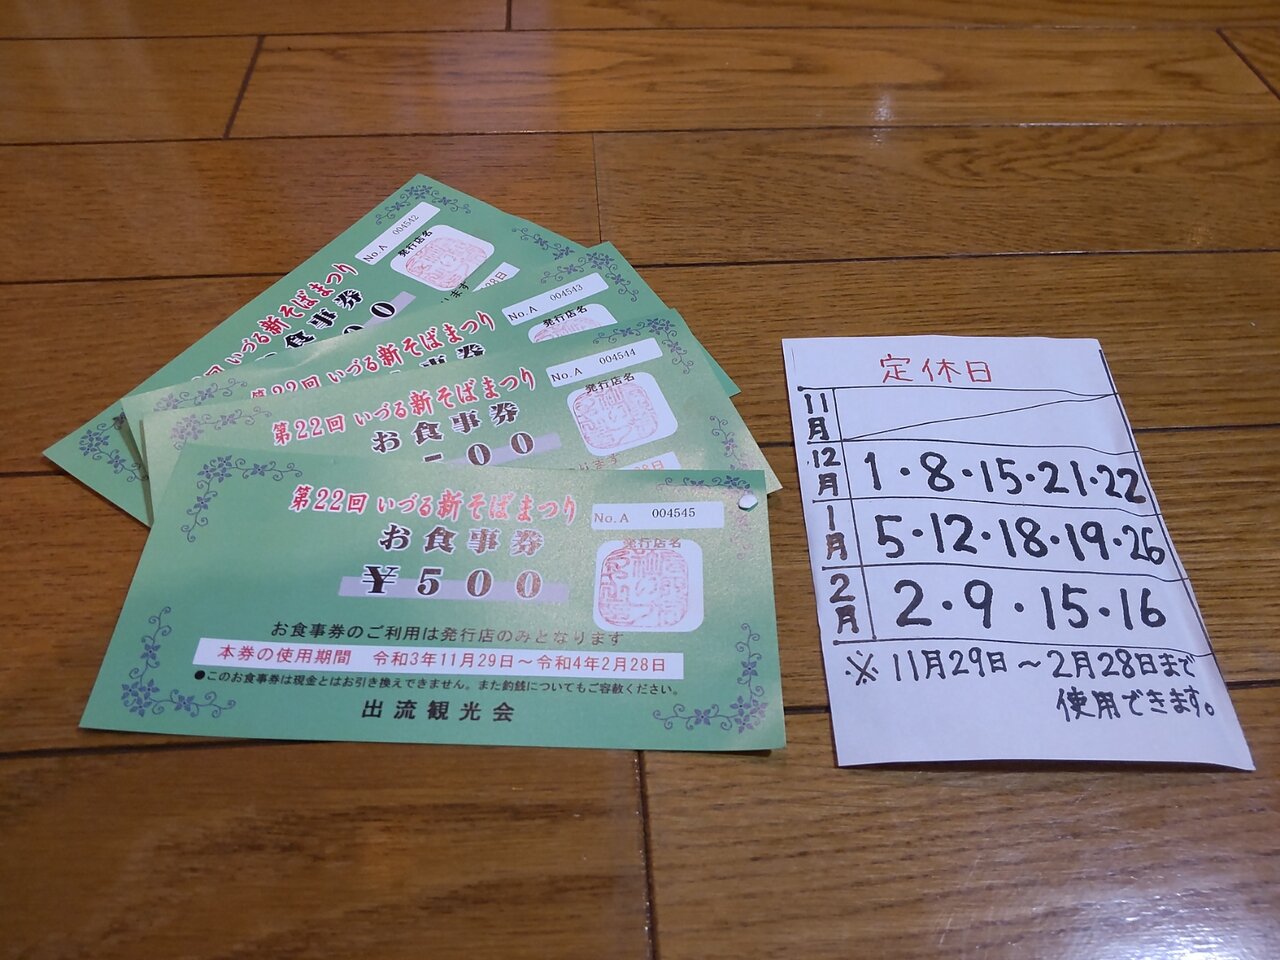 No.A 004542
発行店名
いづる新そばまつり
お食事券
No.A 004543
発行店名
第22回 いづる新そばまつり
No.A 004544
発行店名
第22回 いづる新そばまつり
お食事券
500
第22回 いづる新そばまつり
No.A 004545
お食事券
発行店名
¥500
お食事券のご利用は発行店のみとなります
本券の使用期間 令和3年11月29日～令和4年2月28日
●このお食事券は現金とはお引き換えできません。また釣銭についてもご容赦ください。
出流観光会
定休日
11月
12月 1・8・15・21・22
1月 5・12・18・19・26
2月 2・9・15・16
※ 11月29日～2月28日まで
使用できます。